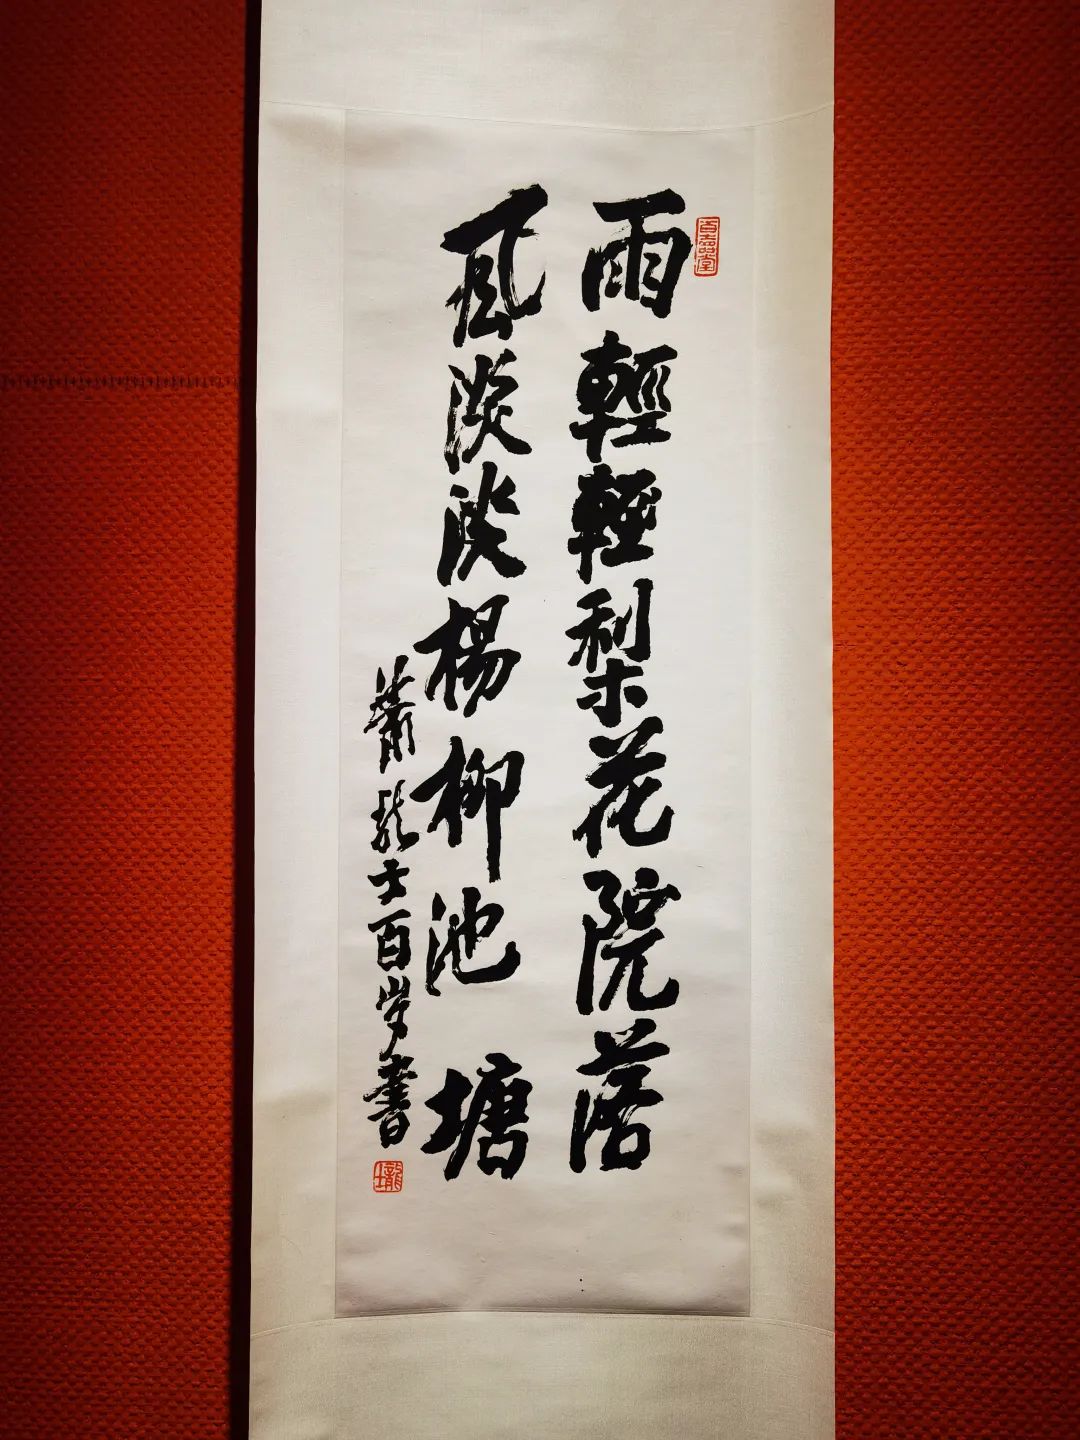 雨輕輕梨花院落
風淡淡楊柳池塘
蕭龍士百岁書